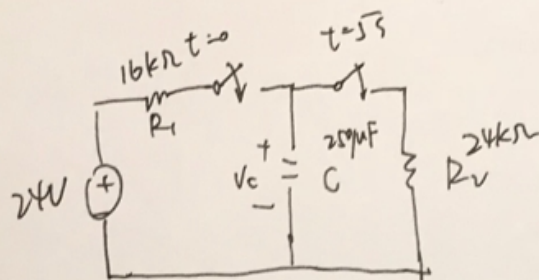 16kΩ t=0
t=5s
R₁
24V
+
Vc
+
−
250μF
C
R₂
24kΩ